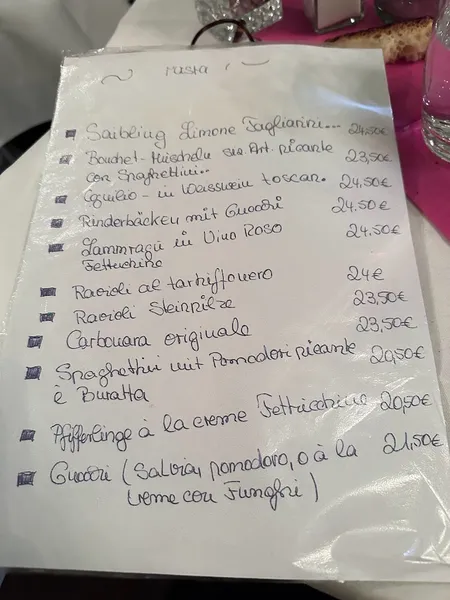 Saibling Limone Tagliarini... 24,50€
Bouchet-Muscheln sic. Art. picante 23,50€
con Spaghettini..
Coniglio - in Weisswein toscan. 24,50€
Rinderbäcken mit Gnocchi 24,50€
Lammragù in Vino Roso 24,50€
Fettuchine
Ravioli al tartuffo nero 24€
Ravioli Steinpilze 23,50€
Carbonara originale 23,50€
Spaghettini mit Pomodori picante 20,50€
è Buratta
Pfifferlinge à la creme Fettucchine 20,50€
Gnocchi (Salvia, pomodoro, o à la 21,50€
creme con Funghi)